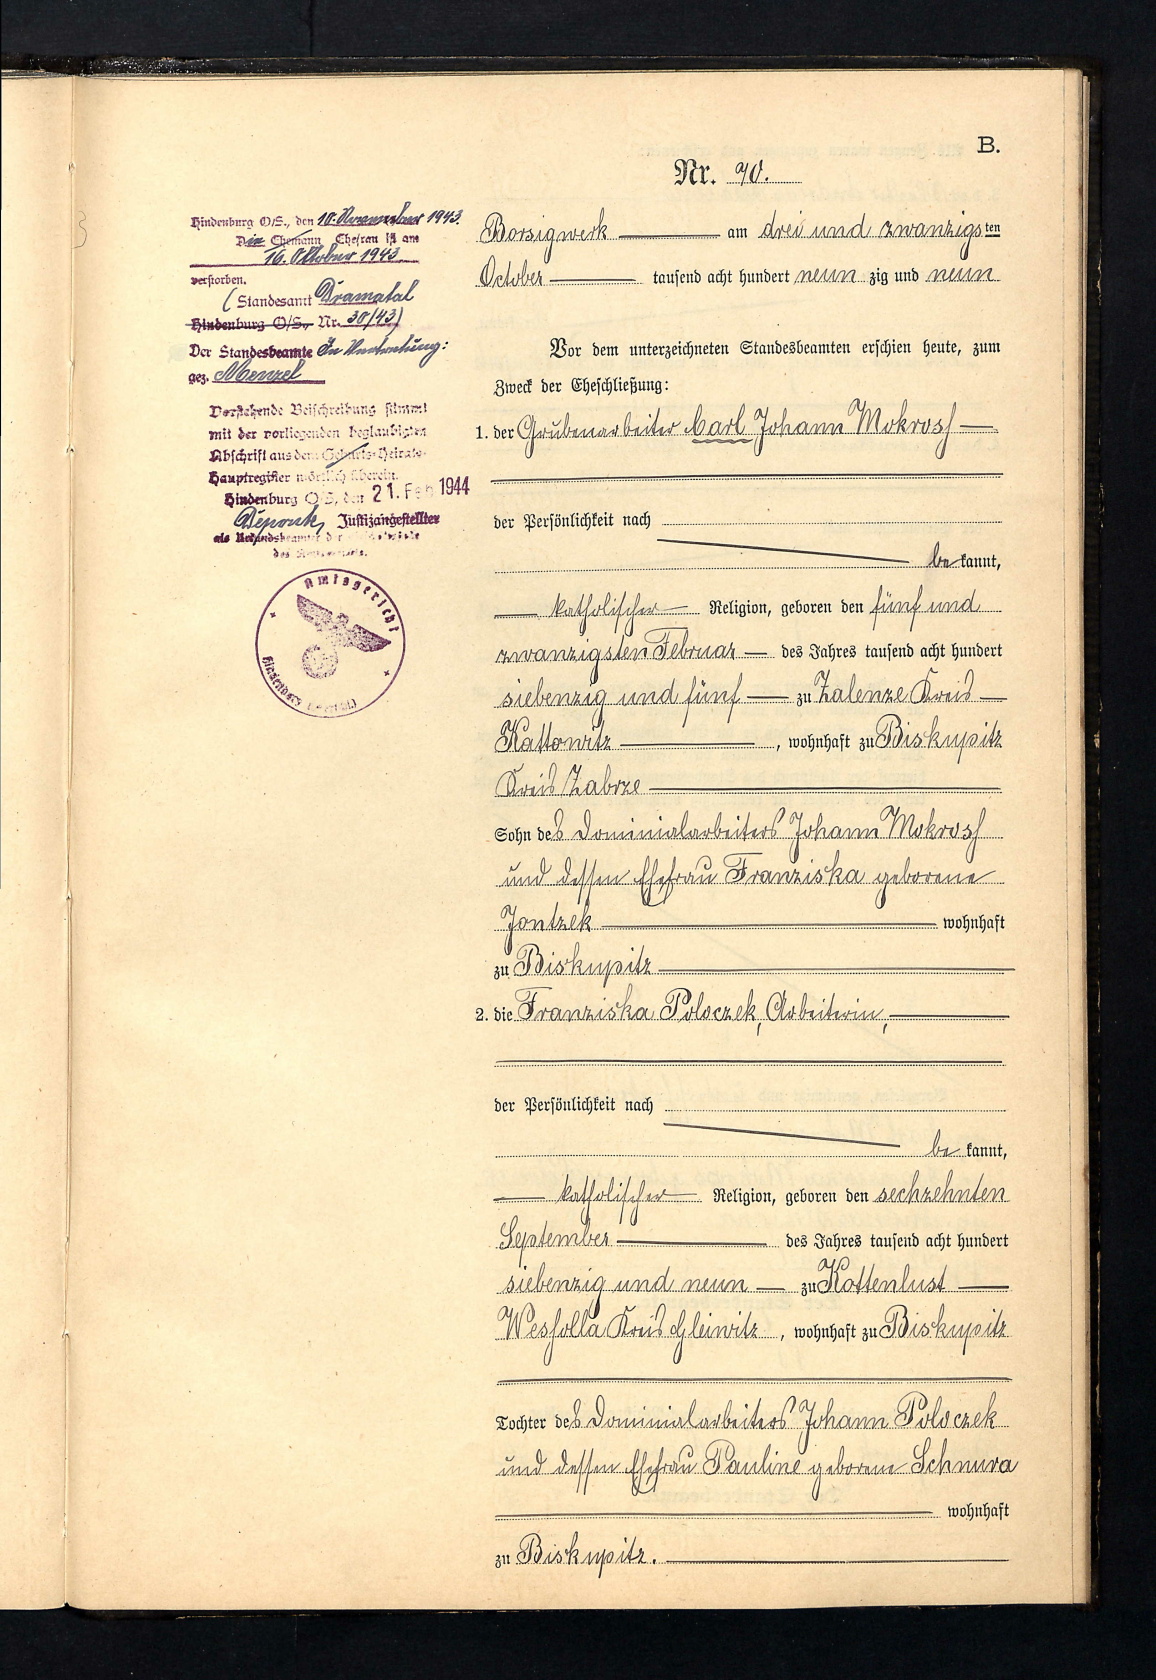 B.
Nr. 70.
Hindenburg O/S., den 10. November 1943.
Die Ehemann Ehefrau ist am
16. Oktober 1943
verstorben.
(Standesamt Dramatal
Hindenburg O/S., Nr. 30/43)
Der Standesbeamte In Vertretung:
gez. Menzel
Vorstehende Beischreibung stimmt
mit der vorliegenden beglaubigten
Abschrift aus dem Geburts-Heirats-
Hauptregister wörtlich überein.
Hindenburg O/S, den 21. Feb 1944
Justizangestellter
als Urkundsbeamter der
des
Amtsgericht
Hindenburg
Borsigwerk am drei und zwanzigsten
October tausend acht hundert neun zig und neun
Vor dem unterzeichneten Standesbeamten erschien heute, zum
Zweck der Eheschließung:
1. der Grubenarbeiter Carl Johann Mokrosch
der Persönlichkeit nach
be kannt,
katholischer Religion, geboren den fünf und
zwanzigsten Februar des Jahres tausend acht hundert
siebenzig und fünf zu Zalenze Kreis
Kattowitz, wohnhaft zu Biskupitz
Kreis Zabrze
Sohn des Dominialarbeiters Johann Mokrosch
und dessen Ehefrau Franziska geborene
Jontzek wohnhaft
zu Biskupitz
2. die Franziska Poloczek, Arbeiterin,
der Persönlichkeit nach
be kannt,
katholischer Religion, geboren den sechzehnten
September des Jahres tausend acht hundert
siebenzig und neun zu Kottenlust
Wessolla Kreis Gleiwitz, wohnhaft zu Biskupitz
Tochter des Dominialarbeiters Johann Poloczek
und dessen Ehefrau Pauline geborene Schnura
wohnhaft
zu Biskupitz.